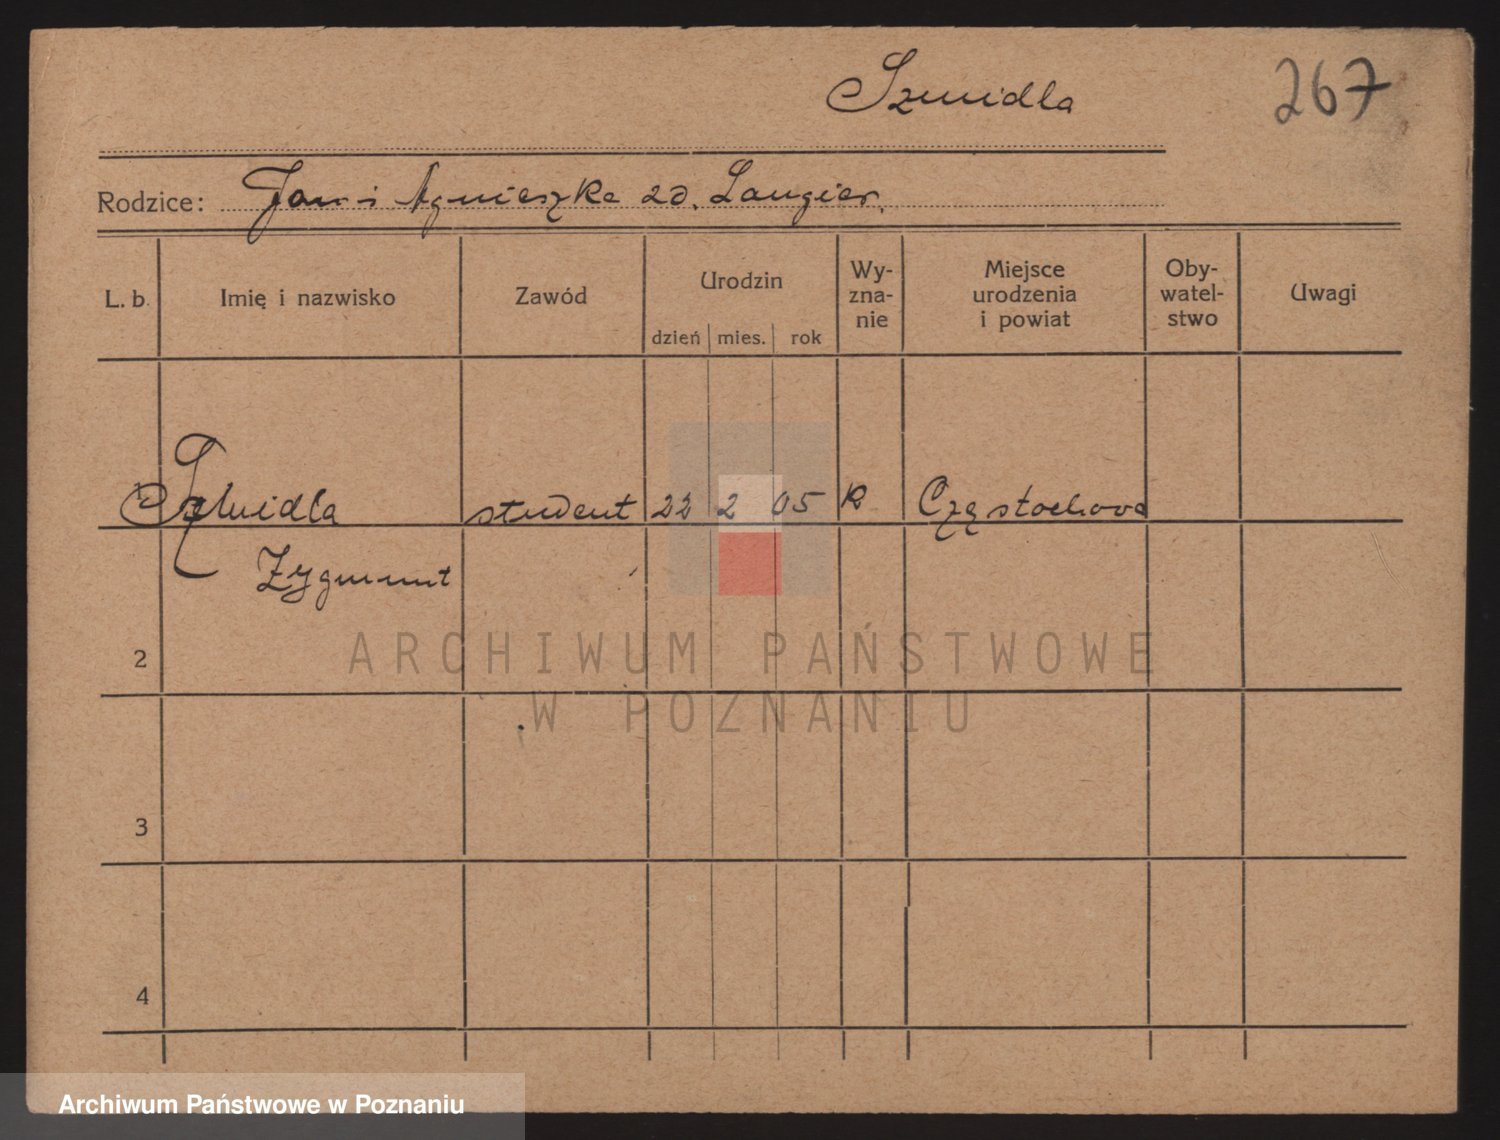 Szmidla
267
Rodzice: Jan i Agnieszka zd. Laugier.
L. b. Imię i nazwisko Zawód Urodzin dzień mies. rok Wy-zna-nie Miejsce urodzenia i powiat Oby-watel-stwo Uwagi
1 Szmidla student 22 2 05 R Częstochowa
Zygmunt
2
ARCHIWUM PAŃSTWOWE
W POZNANIU
3
4
Archiwum Państwowe w Poznaniu